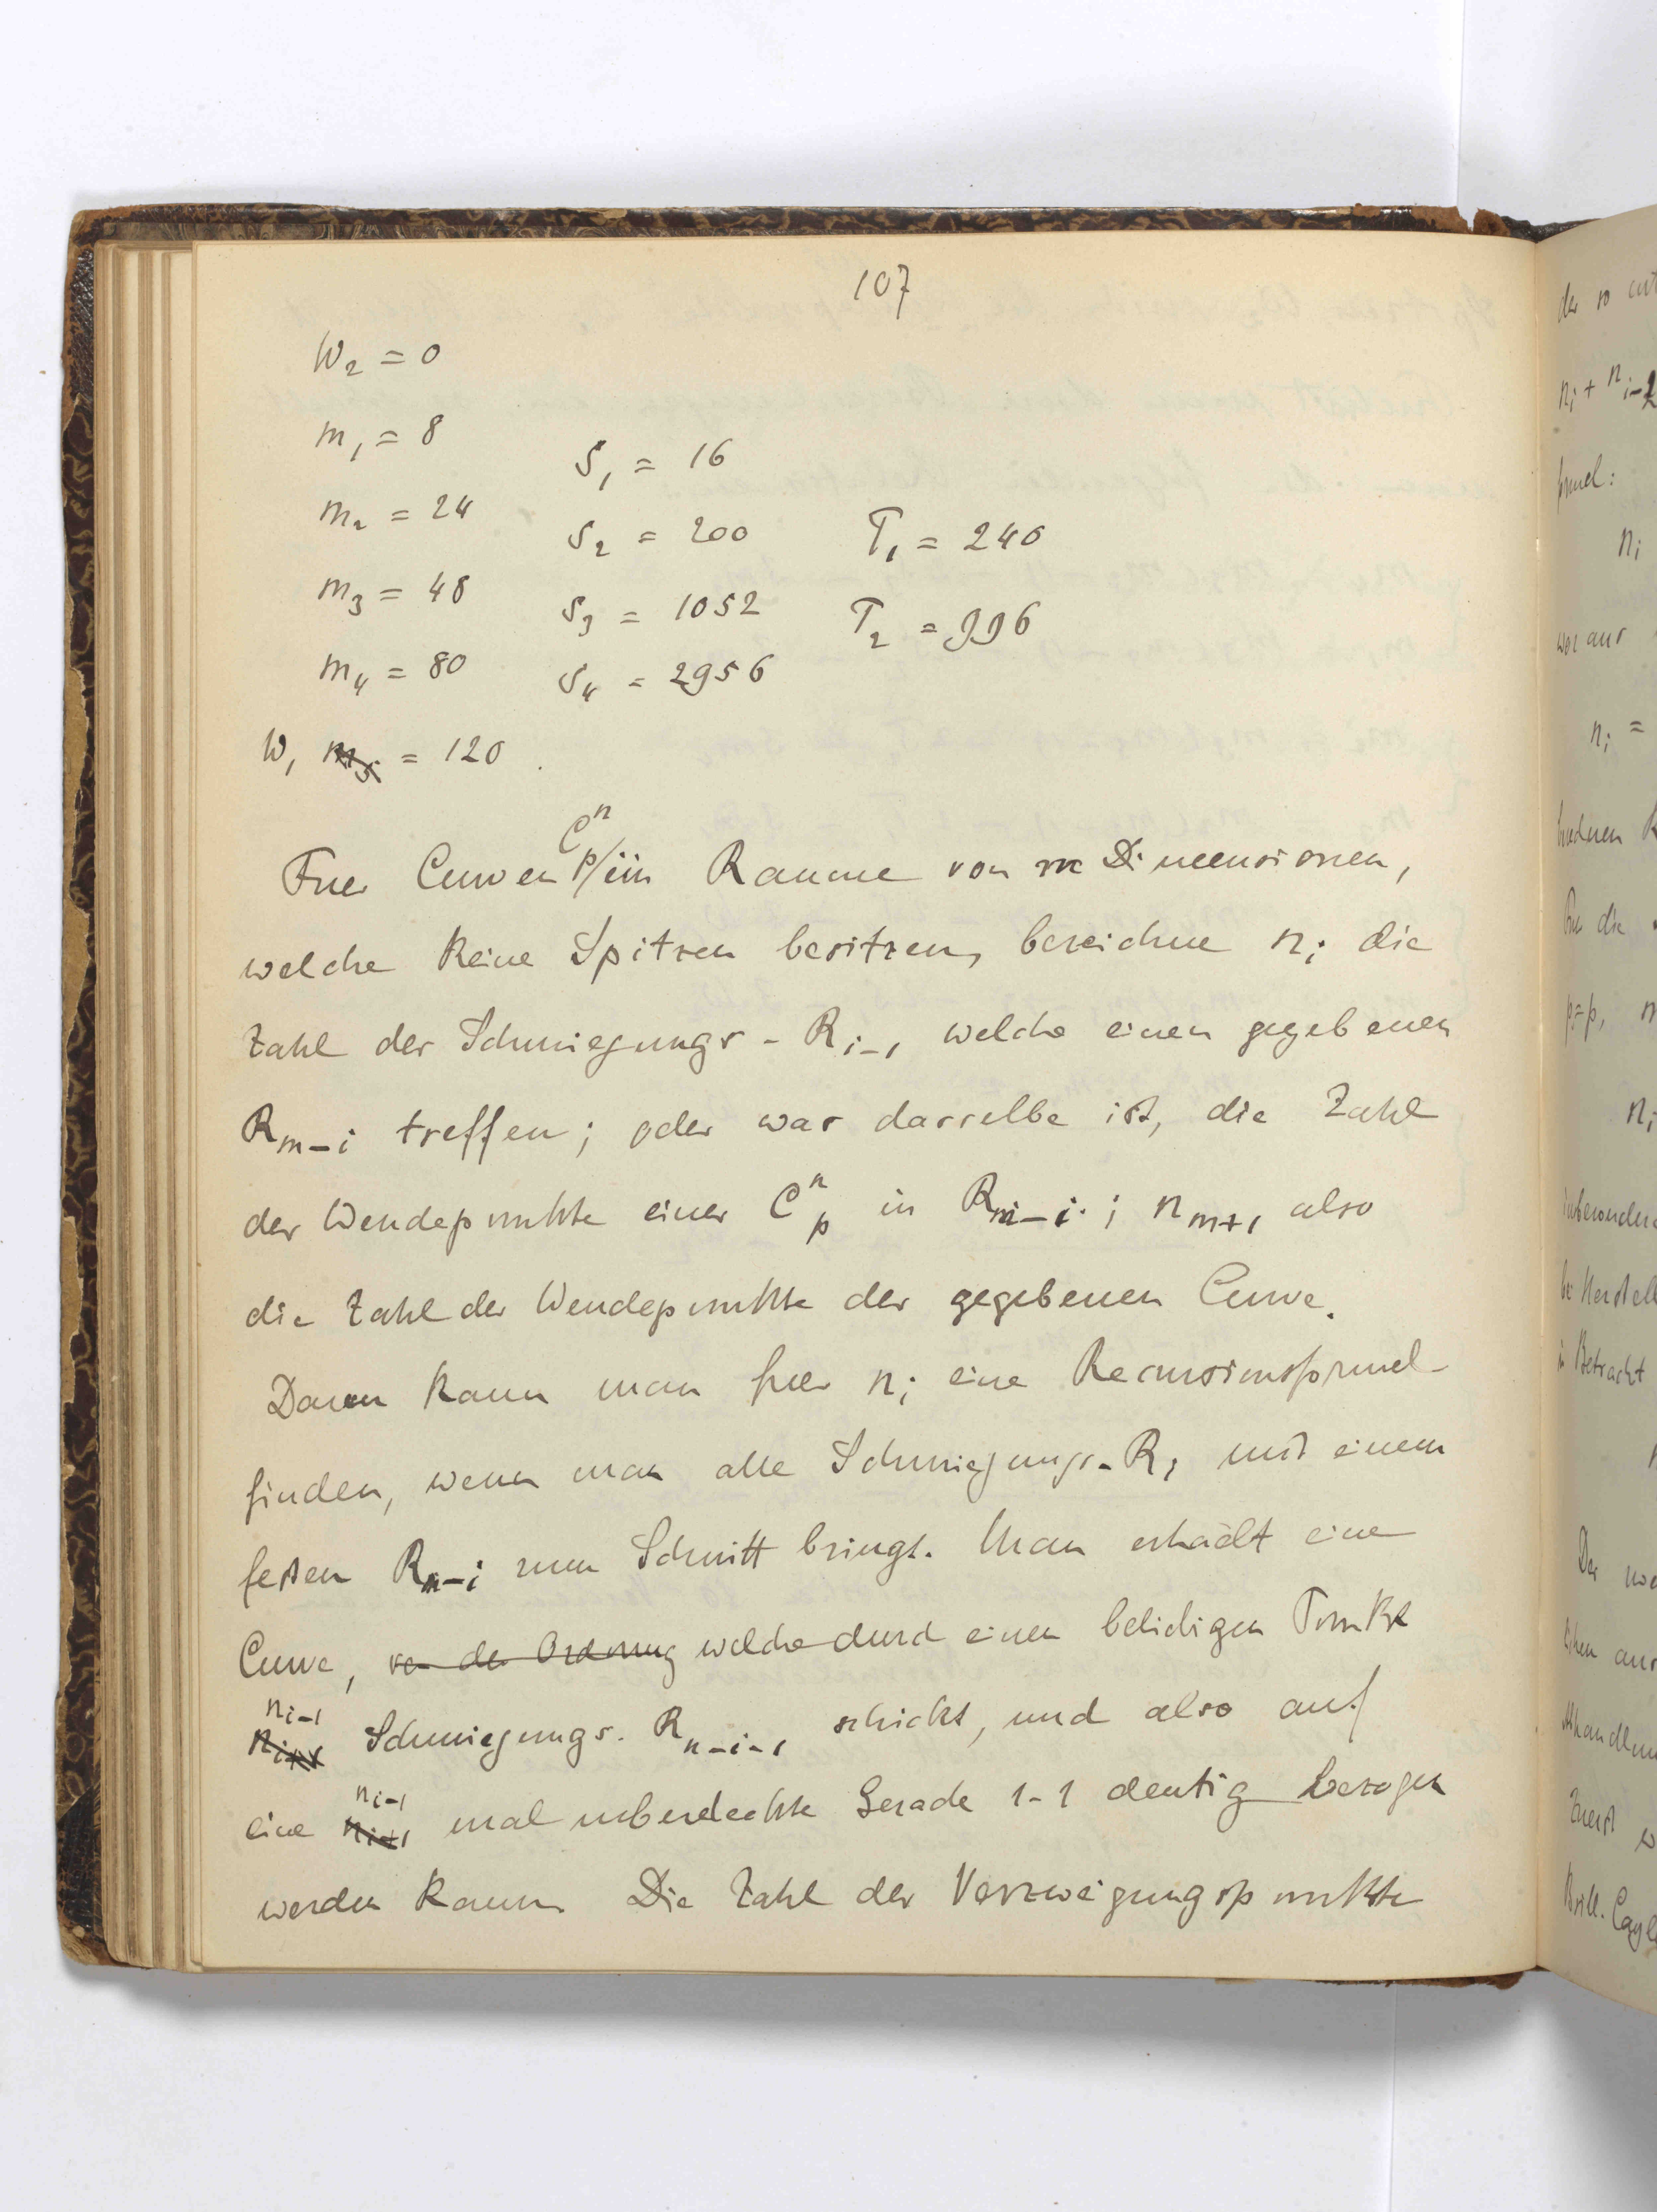 107
W₂ = 0
m₁ = 8
S₁ = 16
m₂ = 24
S₂ = 200
T₁ = 240
m₃ = 48
S₃ = 1052
T₂ = 996
m₄ = 80
S₄ = 2956
W₁ m₅ = 120.
Fuer Curven C^n_p im Raume von m Dimensionen,
welche keine Spitzen besitzen, bezeichne n_i die
Zahl der Schmiegungs-R_{i-1} welche einen gegebenen
R_{m-i} treffen; oder was dasselbe ist, die Zahl
der Wendepunkte einer C^n_p in R_{m-i}; n_{m+1} also
die Zahl der Wendepunkte der gegebenen Curve.
Dann kann man fuer n_i eine Recursionsformel
finden, wenn man alle Schmiegungs-R_i mit einem
festen R_{n-i} zum Schnitt bringt. Man erhaelt eine
Curve, von der Ordnung welche durch einen beliebigen Punkt
n_{i-1}
n_{i+1} Schmiegungs. R_{n-i-1} schickt, und also auf
n_{i-1}
eine n_{i+1} mal ueberdeckte Gerade 1-1 deutig bezogen
werden kann. Die Zahl der Verzweigungspunkte
der so
n_i + n_{i-2}
formel:
n_i
woraus
n_i =
Fuer die
p=p,
n_i
insbesondere
in Betracht
Der
Zuerst
Brill.